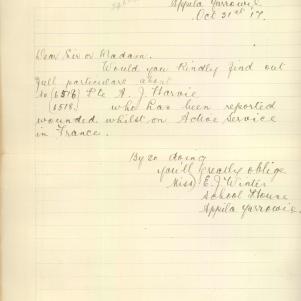 Appila Yarrowie
Oct 31st 17.
Dear Sir or Madam.
Would you kindly find out
full particulars about
No (6516) Pte A. J. Harvie
6518. who has been reported
wounded whilst on Active Service
in France.
By so doing
you'll greatly oblige
Miss) E. J. Winter
School House
Appila Yarrowie.